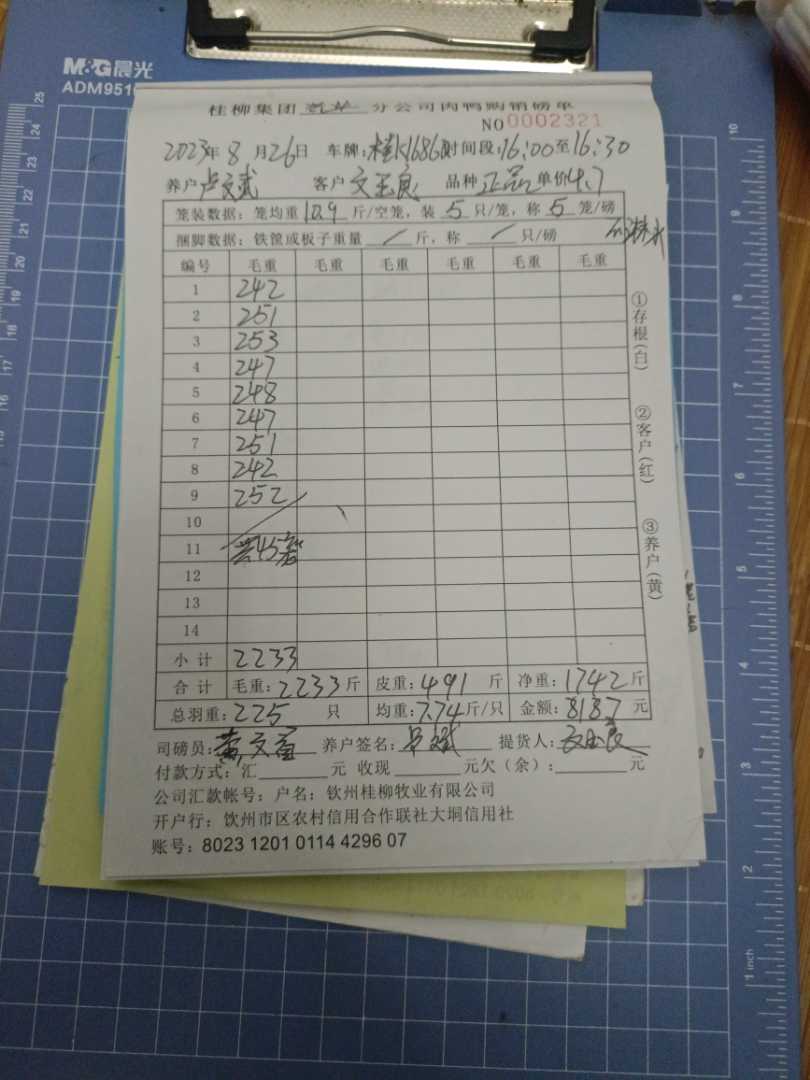 M&G晨光
ADM951
桂柳集团 分公司肉鸭购销磅单
NO 0002321
2023年8月26日 车牌:桂K1686 时间段:16:00至16:30
养户 卢文武 客户 文玉良 品种 正品 单价4.7
笼装数据:笼均重10.9斤/空笼,装5只/笼,称5笼/磅
捆脚数据:铁筐或板子重量 / 斤,称 / 只/磅
编号 毛重 毛重 毛重 毛重 毛重 毛重
1 242
2 251
3 253
4 247
5 248
6 247
7 251
8 242
9 252
10
11 共45笼
12
13
14
小计 2233
合计 毛重:2233斤 皮重:491斤 净重:1742斤
总羽重:225只 均重:7.74斤/只 金额:8187元
司磅员: 养户签名: 提货人:文玉良
付款方式:汇 元 收现 元欠(余): 元
公司汇款帐号:户名:钦州桂柳牧业有限公司
开户行:钦州市区农村信用合作联社大垌信用社
账号:8023 1201 0114 4296 07
①存根(白)
②客户(红)
③养户(黄)